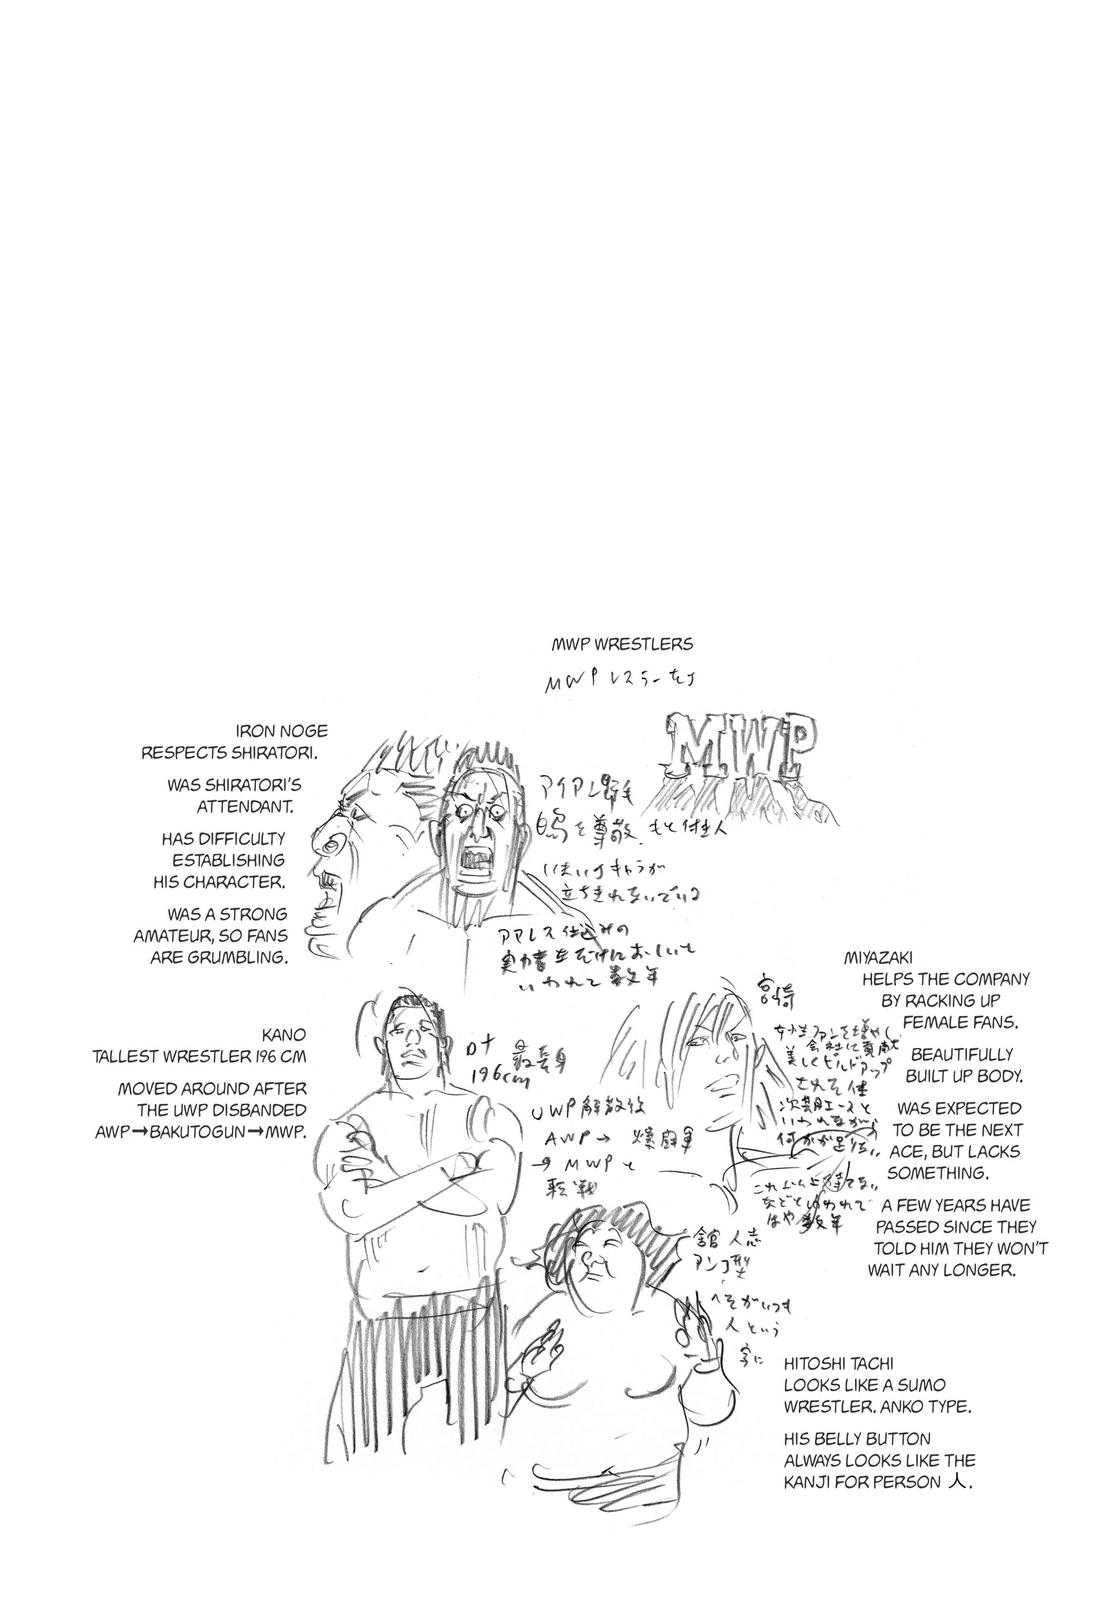 MWP WRESTLERS
MWP レスラーたち
MWP
IRON NOGE
RESPECTS SHIRATORI.
WAS SHIRATORI'S
ATTENDANT.
HAS DIFFICULTY
ESTABLISHING
HIS CHARACTER.
WAS A STRONG
AMATEUR, SO FANS
ARE GRUMBLING.
アイアン野毛
白鳥を尊敬 もと付き人
いまいちキャラが
立ちきれないでいる
アマレス仕込みの
実力者なだけにおしいと
いわれて数年
KANO
TALLEST WRESTLER 196 CM
MOVED AROUND AFTER
THE UWP DISBANDED
AWP→BAKUTOGUN→MWP.
最長身
196cm
UWP解散後
AWP→ 爆闘軍
→MWPと
転戦
MIYAZAKI
HELPS THE COMPANY
BY RACKING UP
FEMALE FANS.
BEAUTIFULLY
BUILT UP BODY.
WAS EXPECTED
TO BE THE NEXT
ACE, BUT LACKS
SOMETHING.
A FEW YEARS HAVE
PASSED SINCE THEY
TOLD HIM THEY WON'T
WAIT ANY LONGER.
宮崎
女性ファンを増やし
会社に貢献
美しくビルドアップ
された体
次期エースと
いわれながら
何かが足りない
これ以上待てない
などといわれて
はや数年
HITOSHI TACHI
LOOKS LIKE A SUMO
WRESTLER. ANKO TYPE.
HIS BELLY BUTTON
ALWAYS LOOKS LIKE THE
KANJI FOR PERSON 人.
舘 人志
アンコ型
へそがいつも
人という
字に